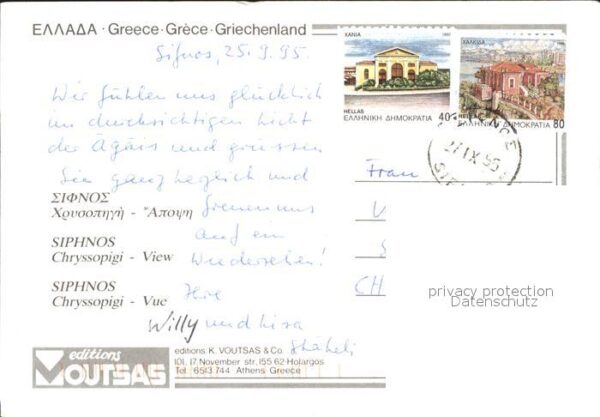 ΕΛΛΑΔΑ · Greece · Grèce · Griechenland
Sifnos, 25.9.95.
ΧΑΝΙΑ
HELLAS
ΕΛΛΗΝΙΚΗ ΔΗΜΟΚΡΑΤΙΑ
40
ΧΑΛΚΙΔΑ
HELLAS
ΕΛΛΗΝΙΚΗ ΔΗΜΟΚΡΑΤΙΑ 80
Wir fühlen uns glücklich
im durchsichtigen Licht
der Ägäis und grüssen
Sie ganz herzlich und
freuen uns
auf ein
Wiedersehen!
Ihre
Willy und Lisa
Stäheli
ΣΙΦΝΟΣ
Χρυσοπηγή - Ἄποψη
SIPHNOS
Chryssopigi - View
SIPHNOS
Chryssopigi - Vue
editions
VOUTSAS
editions K. VOUTSAS & Co.
101, 17 November str, 155 62 Holargos
Tel. 6513 744 Athens Greece
Frau
V
S
CH
privacy protection
Datenschutz